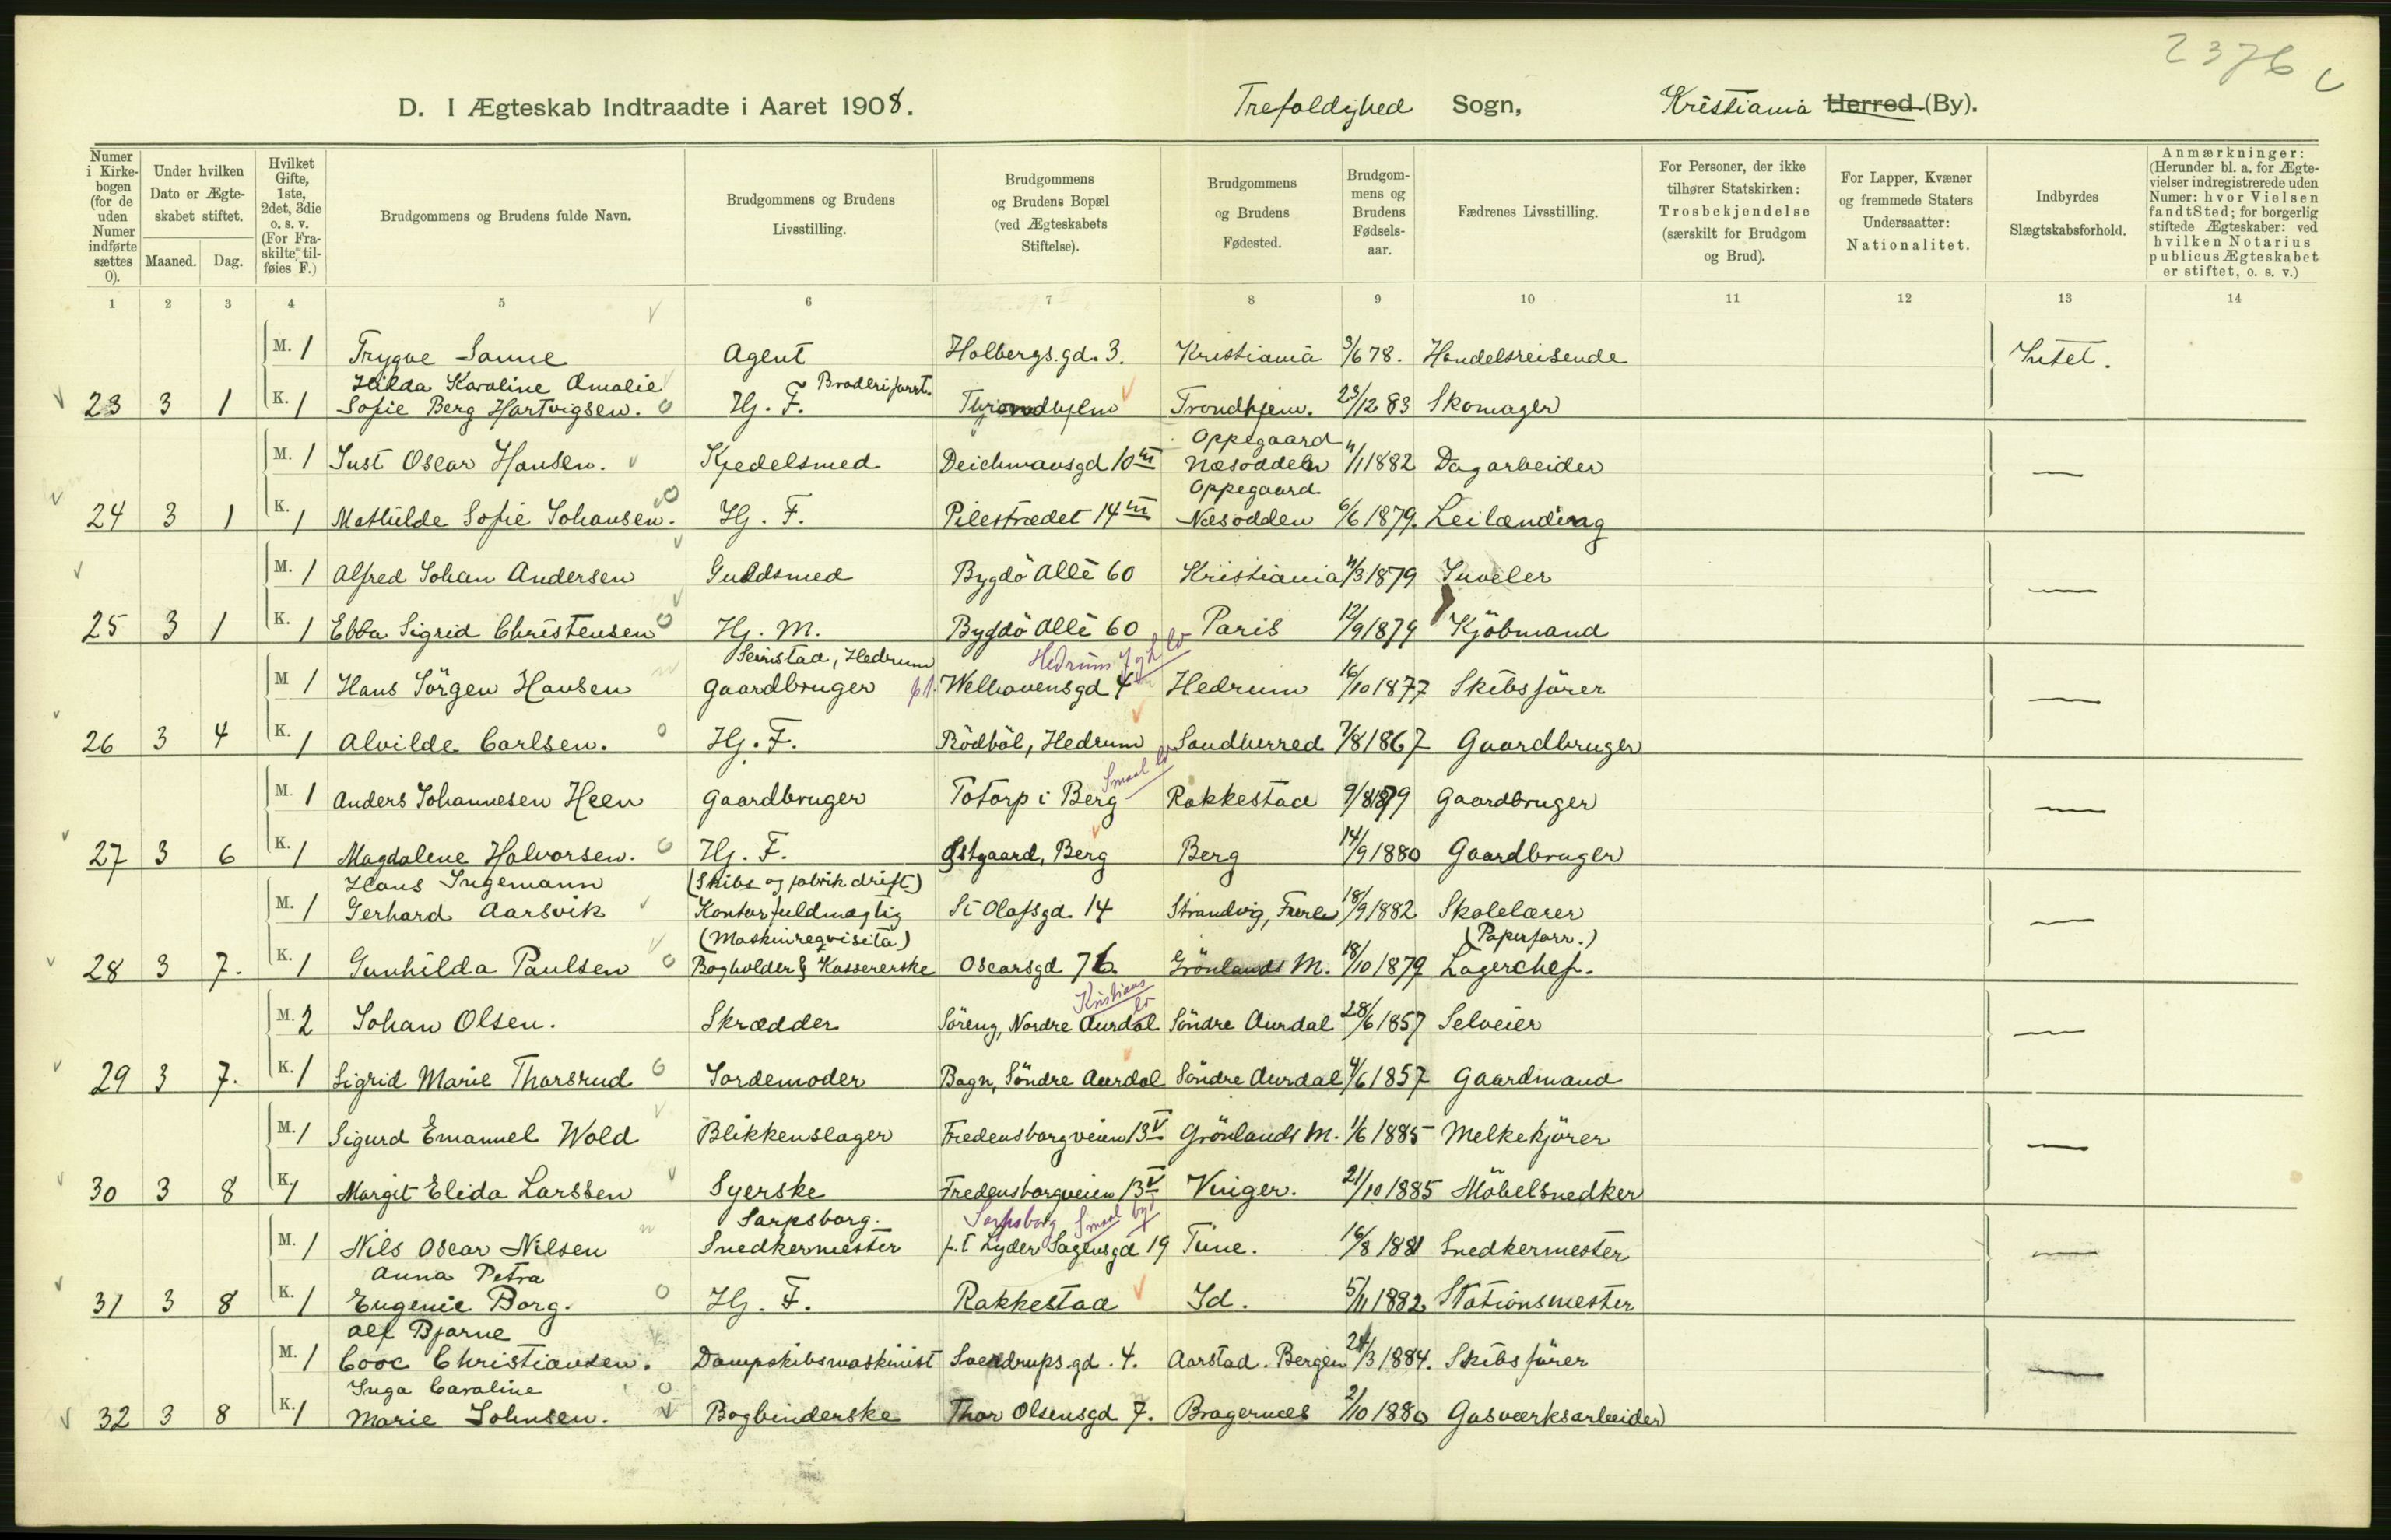 2376 c
D. I Ægteskab Indtraadte i Aaret 1908. Trefoldighed Sogn, Kristiania Herred (By).
Numer i Kirkebogen (for de uden Numer indførte sættes 0).
Under hvilken Dato er Ægteskabet stiftet.
Maaned. Dag.
Hvilket Gifte, 1ste, 2det, 3die o. s. v. (For Fraskilte tilføies F.)
Brudgommens og Brudens fulde Navn.
Brudgommens og Brudens Livsstilling.
Brudgommens og Brudens Bopæl (ved Ægteskabets Stiftelse).
Brudgommens og Brudens Fødested.
Brudgommens og Brudens Fødselsaar.
Fædrenes Livsstilling.
For Personer, der ikke tilhører Statskirken: Trosbekjendelse (særskilt for Brudgom og Brud).
For Lapper, Kvæner og fremmede Staters Undersaatter: Nationalitet.
Indbyrdes Slægtskabsforhold.
Anmærkninger: (Herunder bl. a. for Ægtevielser indregistrerede uden Numer: hvor Vielsen fandt Sted; for borgerlig stiftede Ægteskaber: ved hvilken Notarius publicus Ægteskabet er stiftet, o. s. v.)
1 2 3 4 5 6 7 8 9 10 11 12 13 14
M. 1 Trygve Sanne Agent Holbergs.gd. 3. Kristiania 3/6 78. Handelsreisende Intet.
Hilda Karoline Amalie Broderiforrt.
23 3 1 K. 1 Sofie Berg Hartvigsen. Hj. F. Throndhjem Trondhjem. 23/12 83 Skomager
Oppegaard
M. 1 Just Oscar Hansen. Kjedelsmed Deichmansgd 10 III Næsodden 11/1 1882 Dagarbeider —
Oppegaard
24 3 1 K. 1 Mathilde Sofie Johansen. Hj. F. Pilestrædet 14 III Næsodden 6/6 1879. Leilænding
M. 1 Alfred Johan Andersen Guldsmed Bygdö Allé 60 Kristiania 11/3 1879 Juveler —
25 3 1 K. 1 Ebba Sigrid Christensen Hj. M. Bygdö Allé 60 Paris 12/9 1879 Kjöbmand
Seirstad, Hedrum Hedrum
M 1 Hans Jörgen Hansen Gaardbruger p.t. Welhavensgd 4 Hedrum 16/10 1877 Skibsförer —
26 3 4 K. 1 Alvilde Carlsen. Hj. F. Rödböl, Hedrum Sandherred 7/8 1867 Gaardbruger
Smaal
M. 1 Anders Johannesen Heen Gaardbruger Totorp i Berg Rakkestad 9/8 1879 Gaardbruger —
27 3 6 K. 1 Magdalene Halvorsen. Hj. F. Østgaard, Berg Berg 14/9 1880 Gaardbruger
Hans Ingemann (Skibs og fabrikdrift)
M. 1 Gerhard Aarsvik Kontorfuldmægtig St Olafsgd 14 Strandvig, 18/9 1882 Skolelærer —
(Maskinreqvisita) (Papirforr.)
28 3 7. K. 1 Gunhilda Paulsen Bogholder & Kassererske Oscarsgd 76. Grönlands M. 18/10 1879 Lagerchef.
Kristians
M. 2 Johan Olsen. Skrædder Söreng, Nordre Aurdal Söndre Aurdal 28/6 1857 Selveier —
29 3 7. K. 1 Sigrid Marie Thorsrud Jordemoder Bagn, Söndre Aurdal Söndre Aurdal 4/6 1857 Gaardmand
M. 1 Sigurd Emanuel Wold Blikkenslager Fredensborgveien 13 V Grönlands M. 1/6 1885 Melkekjörer —
30 3 8 K. 1 Margit Elida Larssen Syerske Fredensborgveien 13 V Vinger. 21/10 1885 Möbelsnedker
Sarpsborg. Sarpsborg Smaal byd
M. 1 Nils Oscar Nilsen Snedkermester p.t Lyder Sagensgd 19 Tune. 16/8 1881 Snedkermester —
Anna Petra
31 3 8 K. 1 Eugenie Borg. Hj. F. Rakkestad Id. 5/11 1882. Stationsmester
Alf Bjarne
M. 1 Cooc Christiansen. Dampskibsmaskinist Sverdrups.gd. 4. Aarstad. Bergen 24/3 1884. Skibsförer —
Inga Caroline
32 3 8 K. 1 Marie Johnsen. Bogbinderske Thor Olsensgd 7. Bragernæs 2/10 1880 Gasværksarbeider